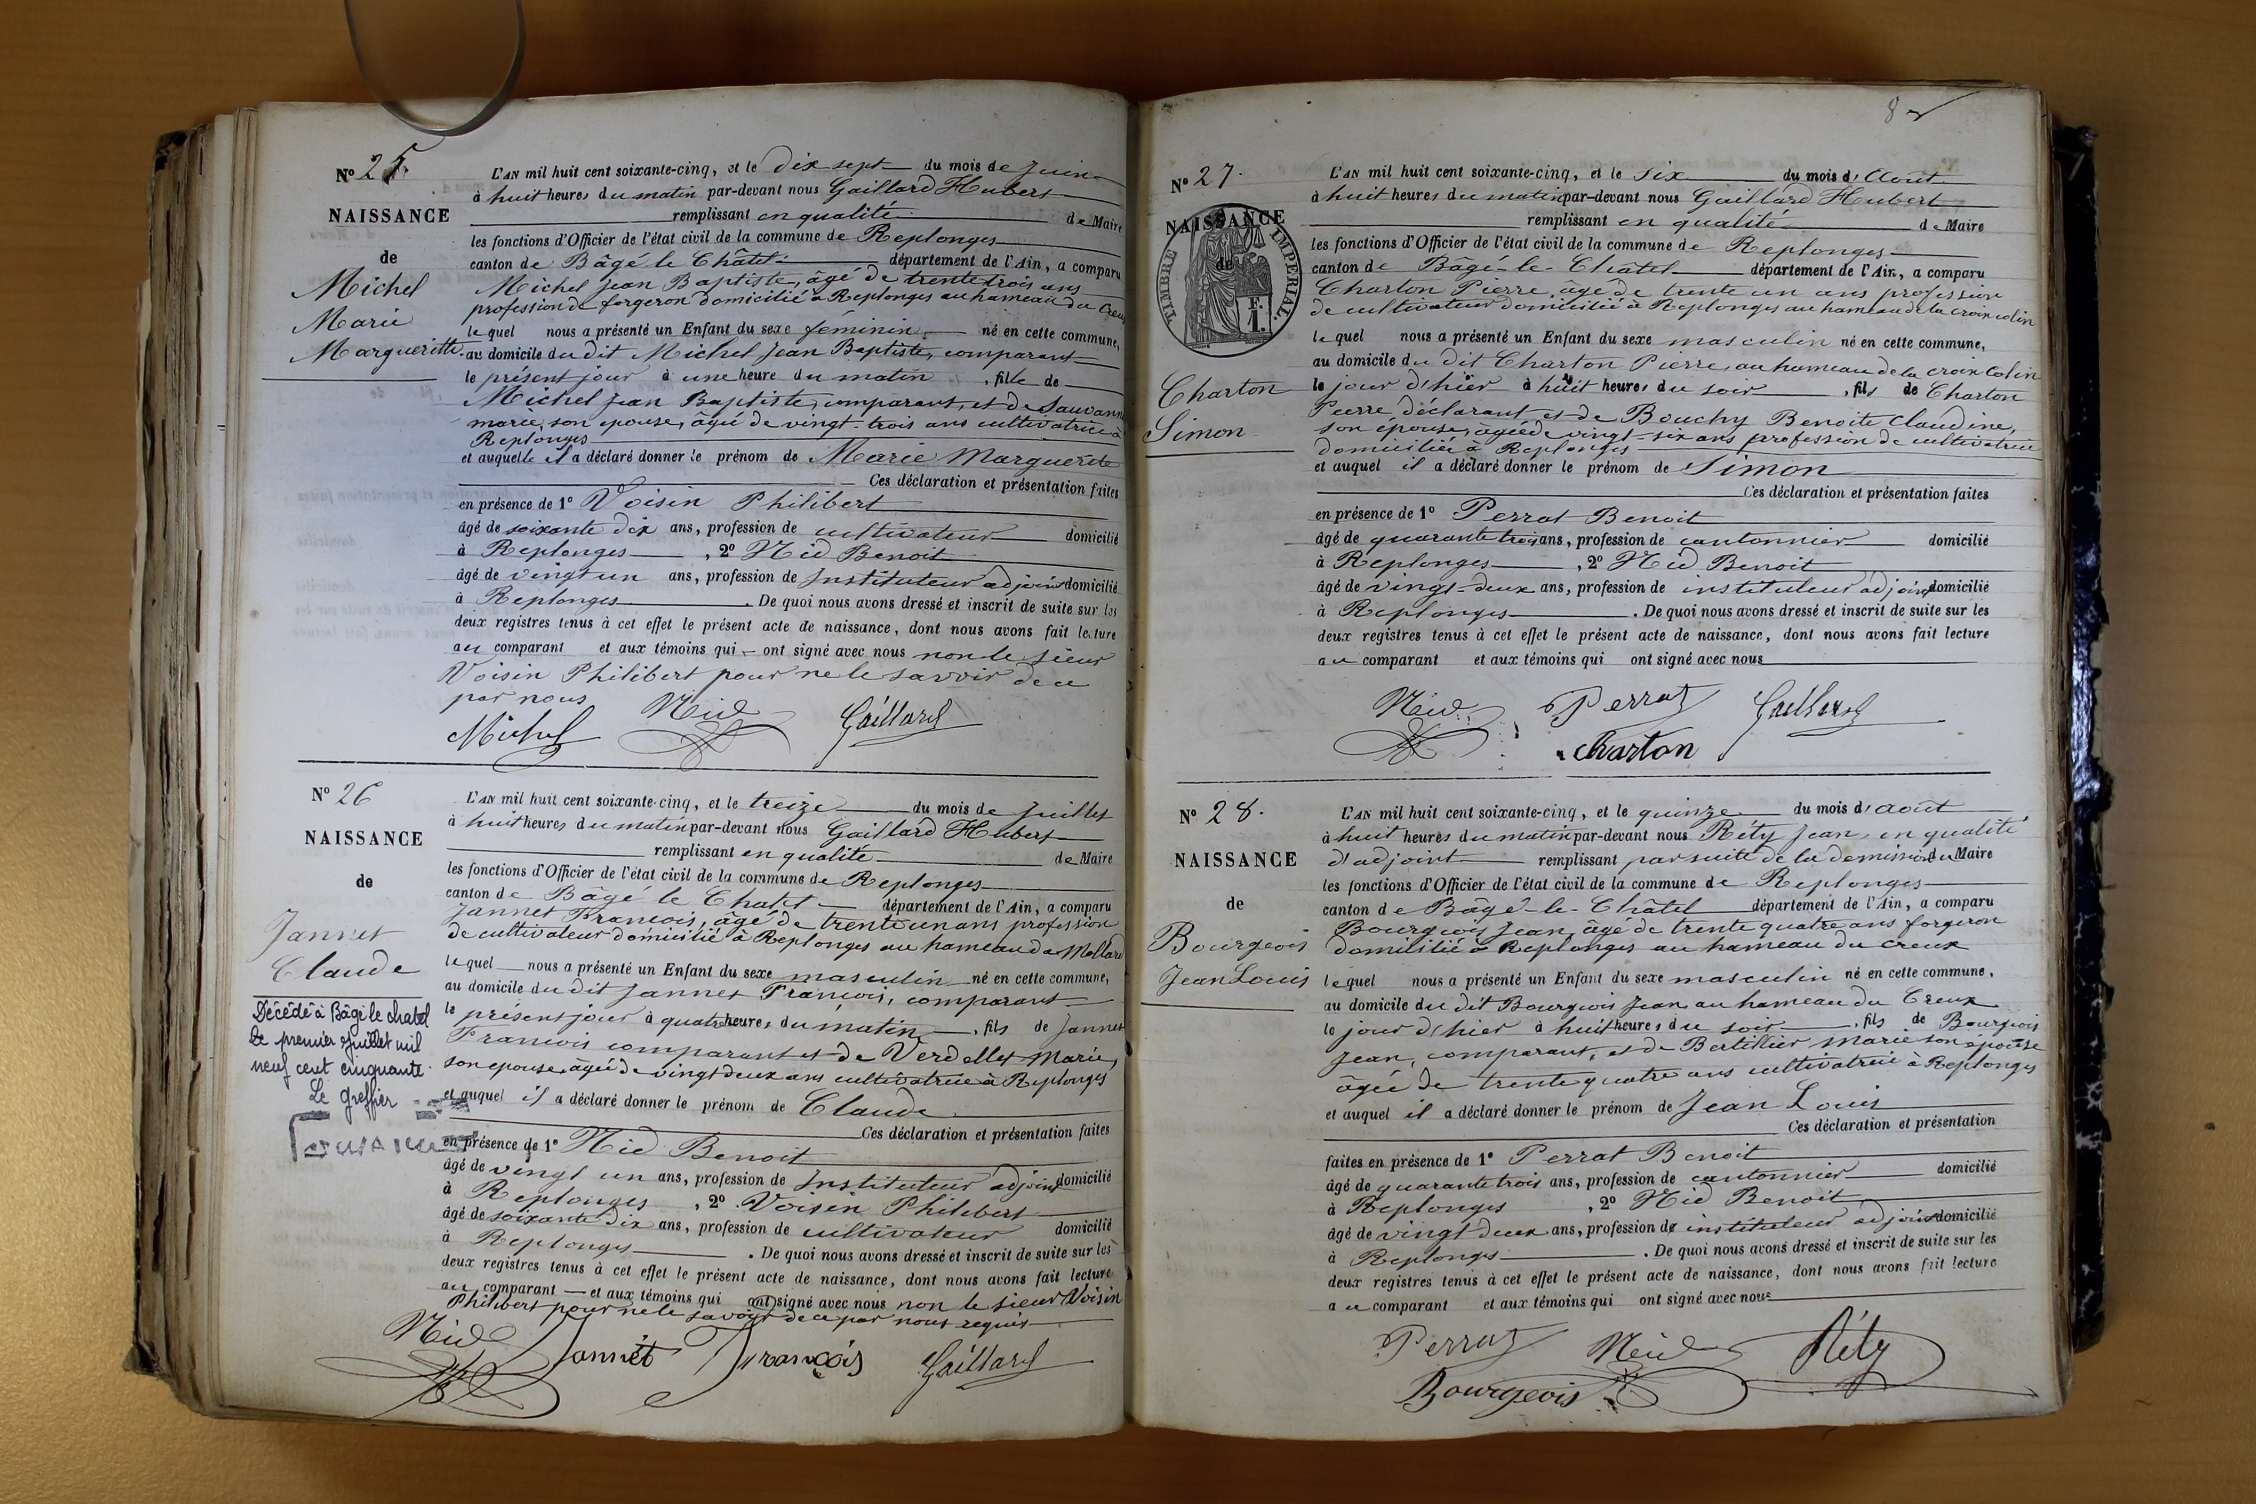 N° 25.
NAISSANCE
de
Michel
Marie
Marguerite
L'AN mil huit cent soixante-cinq, et le dix sept du mois de Juin
à huit heures du matin par-devant nous Gaillard Hubert
remplissant en qualité de Maire
les fonctions d'Officier de l'état civil de la commune de Replonges
canton de Bâgé le Châtel département de l'Ain, a comparu
Michel Jean Baptiste, âgé de trente trois ans
profession de forgeron domicilié à Replonges au hameau du Creux
lequel nous a présenté un Enfant du sexe féminin né en cette commune,
au domicile du dit Michel Jean Baptiste, comparant
le présent jour à une heure du matin, fille de
Michel Jean Baptiste, comparant, et de Sauvanne
marie, son épouse, âgée de vingt-trois ans cultivatrice à
Replonges
et auquelle il a déclaré donner le prénom de Marie Marguerite
Ces déclaration et présentation faites
en présence de 1° Voisin Philibert
âgé de soixante dix ans, profession de cultivateur domicilié
à Replonges, 2° Nid Benoit
âgé de vingt un ans, profession de Instituteur adjoint domicilié
à Replonges. De quoi nous avons dressé et inscrit de suite sur les
deux registres tenus à cet effet le présent acte de naissance, dont nous avons fait lecture
au comparant et aux témoins qui ont signé avec nous non le sieur
Voisin Philibert pour ne le savoir de ce
par nous
Michel Nid Gaillard
N° 26
NAISSANCE
de
Jannet
Claude
Décédé à Bâgé le chatel
Le premier Juillet mil
neuf cent cinquante.
Le greffier
L'AN mil huit cent soixante-cinq, et le treize du mois de Juillet
à huit heures du matin par-devant nous Gaillard Hubert
remplissant en qualité de Maire
les fonctions d'Officier de l'état civil de la commune de Replonges
canton de Bâgé le Chatel département de l'Ain, a comparu
Jannet Francois, âgé de trente un ans profession
de cultivateur domicilié à Replonges au hameau de Mollard
lequel nous a présenté un Enfant du sexe masculin né en cette commune,
au domicile du dit Jannet Francois, comparant
le présent jour à quatre heures du matin, fils de Jannet
Francois comparant et de Verdellet Marie,
son epouse, âgée de vingt deux ans cultivatrice à Replonges
et auquel il a déclaré donner le prénom de Claude
Ces déclaration et présentation faites
en présence de 1° Nid Benoit
âgé de vingt un ans, profession de Instituteur adjoint domicilié
à Replonges, 2° Voisin Philibert
âgé de soixante dix ans, profession de cultivateur domicilié
à Replonges. De quoi nous avons dressé et inscrit de suite sur les
deux registres tenus à cet effet le présent acte de naissance, dont nous avons fait lecture
au comparant et aux témoins qui ont signé avec nous non le sieur Voisin
Philibert pour ne le savoir de ce par nous requis
Nid Jannet François Gaillard
8
N° 27.
NAISSANCE
de
TIMBRE IMPERIAL.
1 F.
Charton
Simon
L'AN mil huit cent soixante-cinq, et le six du mois d'Août
à huit heures du matin par-devant nous Gaillard Hubert
remplissant en qualité de Maire
les fonctions d'Officier de l'état civil de la commune de Replonges
canton de Bâgé-le-Châtel département de l'Ain, a comparu
Charton Pierre, âgé de trente un ans profession
de cultivateur domicilié à Replonges au hameau de la croix colin
lequel nous a présenté un Enfant du sexe masculin né en cette commune,
au domicile du dit Charton Pierre, au hameau de la croix Colin
le jour d'hier à huit heures du soir, fils de Charton
Pierre, déclarant, et de Bouchy Benoite Claudine,
son épouse, âgée de vingt-six ans profession de cultivatrice
domiciliée à Replonges
et auquel il a déclaré donner le prénom de Simon
Ces déclaration et présentation faites
en présence de 1° Perrat Benoit
âgé de quarante trois ans, profession de cantonnier domicilié
à Replonges, 2° Nid Benoit
âgé de vingt-deux ans, profession de instituteur adjoint domicilié
à Replonges. De quoi nous avons dressé et inscrit de suite sur les
deux registres tenus à cet effet le présent acte de naissance, dont nous avons fait lecture
au comparant et aux témoins qui ont signé avec nous
Nid Perrat Gaillard
Charton
N° 28.
NAISSANCE
de
Bourgeois
Jean Louis
L'AN mil huit cent soixante-cinq, et le quinze du mois d'août
à huit heures du matin par-devant nous Réty Jean, en qualité
d'adjoint remplissant par suite de la demission du Maire
les fonctions d'Officier de l'état civil de la commune de Replonges
canton de Bâgé-le-Châtel département de l'Ain, a comparu
Bourgeois Jean, âgé de trente quatre ans forgeron
domicilié à Replonges au hameau du creux
lequel nous a présenté un Enfant du sexe masculin né en cette commune,
au domicile du dit Bourgeois Jean au hameau du Creux
le jour d'hier à huit heures du soir, fils de Bourgeois
Jean, comparant, et de Bertillier Marie son epouse
âgée de trente quatre ans cultivatrice à Replonges
et auquel il a déclaré donner le prénom de Jean Louis
Ces déclaration et présentation
faites en présence de 1° Perrat Benoit
âgé de quarante trois ans, profession de cantonnier domicilié
à Replonges, 2° Nid Benoit
âgé de vingt deux ans, profession de instituteur adjoint domicilié
à Replonges. De quoi nous avons dressé et inscrit de suite sur les
deux registres tenus à cet effet le présent acte de naissance, dont nous avons fait lecture
au comparant et aux témoins qui ont signé avec nous
Perrat Nid Réty
Bourgeois